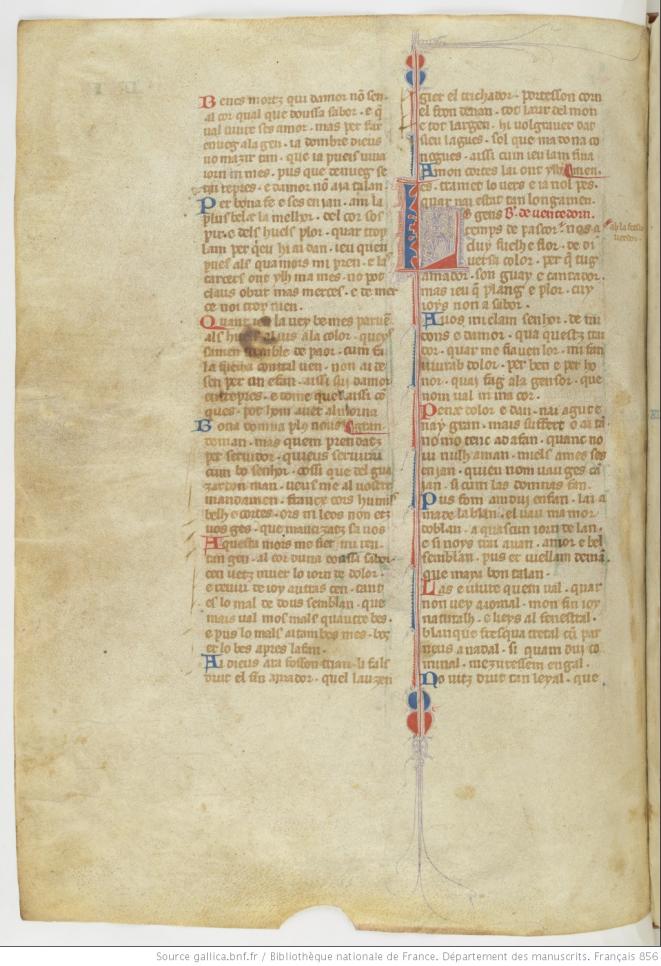 Benes mortz qui damor nō sen
al cor qual que doussa sabor · e q̄
ual viure ses amor · mas per far
enueg ala gen · ia dombre dieus
no mazir tan · que ia pueis uiua
iorn ni mes · pus que denueg se
rai repres · e damor nō aia talan ·
Per bona fe e ses enjan · am la
plus bela e la melhor · del cor sos
pir e dels huels plor · quar trop
lam per q̄u hi ai dan · ieu quen
pues als qua mors mi pren · e las
carcers on ylh ma mes · no pot
claus obrir mas merces · e de mer
ce noi trop nien ·
Quant ieu la vey be mes paruē
als huels al vis ala color · queys
samen tremble de paor · cum fa
la fuelha contral ven · non ai de
sen per un efan · aissi sui damor
entrepres · e dome quel aissi cō
ques · pot hom auer almorna gran ·
Bona domna plus nous
deman · mas quem prendatz
per seruidor · quieus seruirai
cum bo senhor · cossi que del gua
zardon man · veus me al vostre
mandamen · francx cors humils
belh e cortes · ors ni leos non etz
vos ges · que mauciatz sa vos
Aquesta mors me fier tan ien
tan gen · al cor duna doussa sabor
cen vetz muer lo iorn de dolor ·
e reuiu de ioy autras cen · tant
es lo mal de dous semblan · que
mais val mos mals quautre bes ·
e pus lo mals aitan bos mes · bos
er lo bes apres lafan ·
Ai dieus ara fosson trian · li fals
drut el fin amador · quel lauzen
gier el trichador · portesson corn
el fron denan · tot laur del mon
e tot largen · hi volgrauer dat
sieu lagues · sol que ma dona co
nogues · aissi cum ieu lam fina
Amon cortes lai ont ylh es men
es · tramet lo vers e ia nol pes
quar nai estat tan longamen ·
L gens B. de uentedorn.
temps de pascor · nos a
ab la fresca
uerdor
duy fuelh e flor · de di
uersa color · per q̄ tug
amador · son guay e cantador
mas ieu q̄ plang e plor · cuy
ioys non a sabor ·
A uos mi clam senhor · de mi
dons e damor · qua questz trai
dor · quar me fiauen lor · mi fan
viure ab dolor · per ben e per ho
nor · quai fag ala gensor · que
nom val ni ma cor ·
Pena e dolor e dan · nai agut e
nay gran · mais suffert o ai tā
no mo tenc ad afan · quanc no
ui nulh aman · miels ames ses
enjan · quieu nom vau ges cā
jan · si cum las domnas fan ·
Pus fom amdui enfan · lai a
mada e la blan · el vau mamor
doblan · a quascun iorn de lan ·
e si noys trai auan · amor e bel
semblan · pus er viellam demā
que maya bon talan ·
Las e viure quem val · quar
non vey a iornal · mon fin ioy
natural · el leys al fenestral ·
blanque fresqua e tal cū par
neus a nadal · si quam dui co
minal · mezuressem engal ·
No vitz drut tan leyal · que
Source gallica.bnf.fr / Bibliothèque nationale de France. Département des manuscrits. Français 856